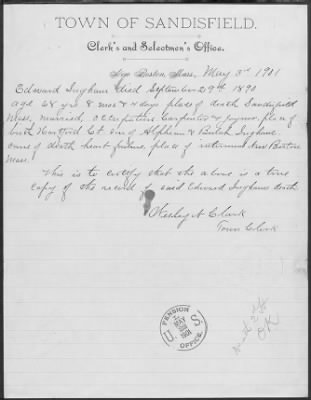 TOWN OF SANDISFIELD.
Clerk's and Selectmen's Office.
New Boston, Mass., May 3rd 1901
Edward Ingham died September 29th 1890
age 68 yrs 8 mos & 4 days place of death Sandisfield
Mass, married, Carpenter & Joyner, place of
birth Hartford Ct Son of Alpheus & Beulah Ingham.
cause of death heart failure place of interment New Boston
Mass.
This is to certify that the above is a true
copy of the record of said Edward Inghams death
Clark
Town Clerk
U.S. PENSION OFFICE.
MAY
1901
OK